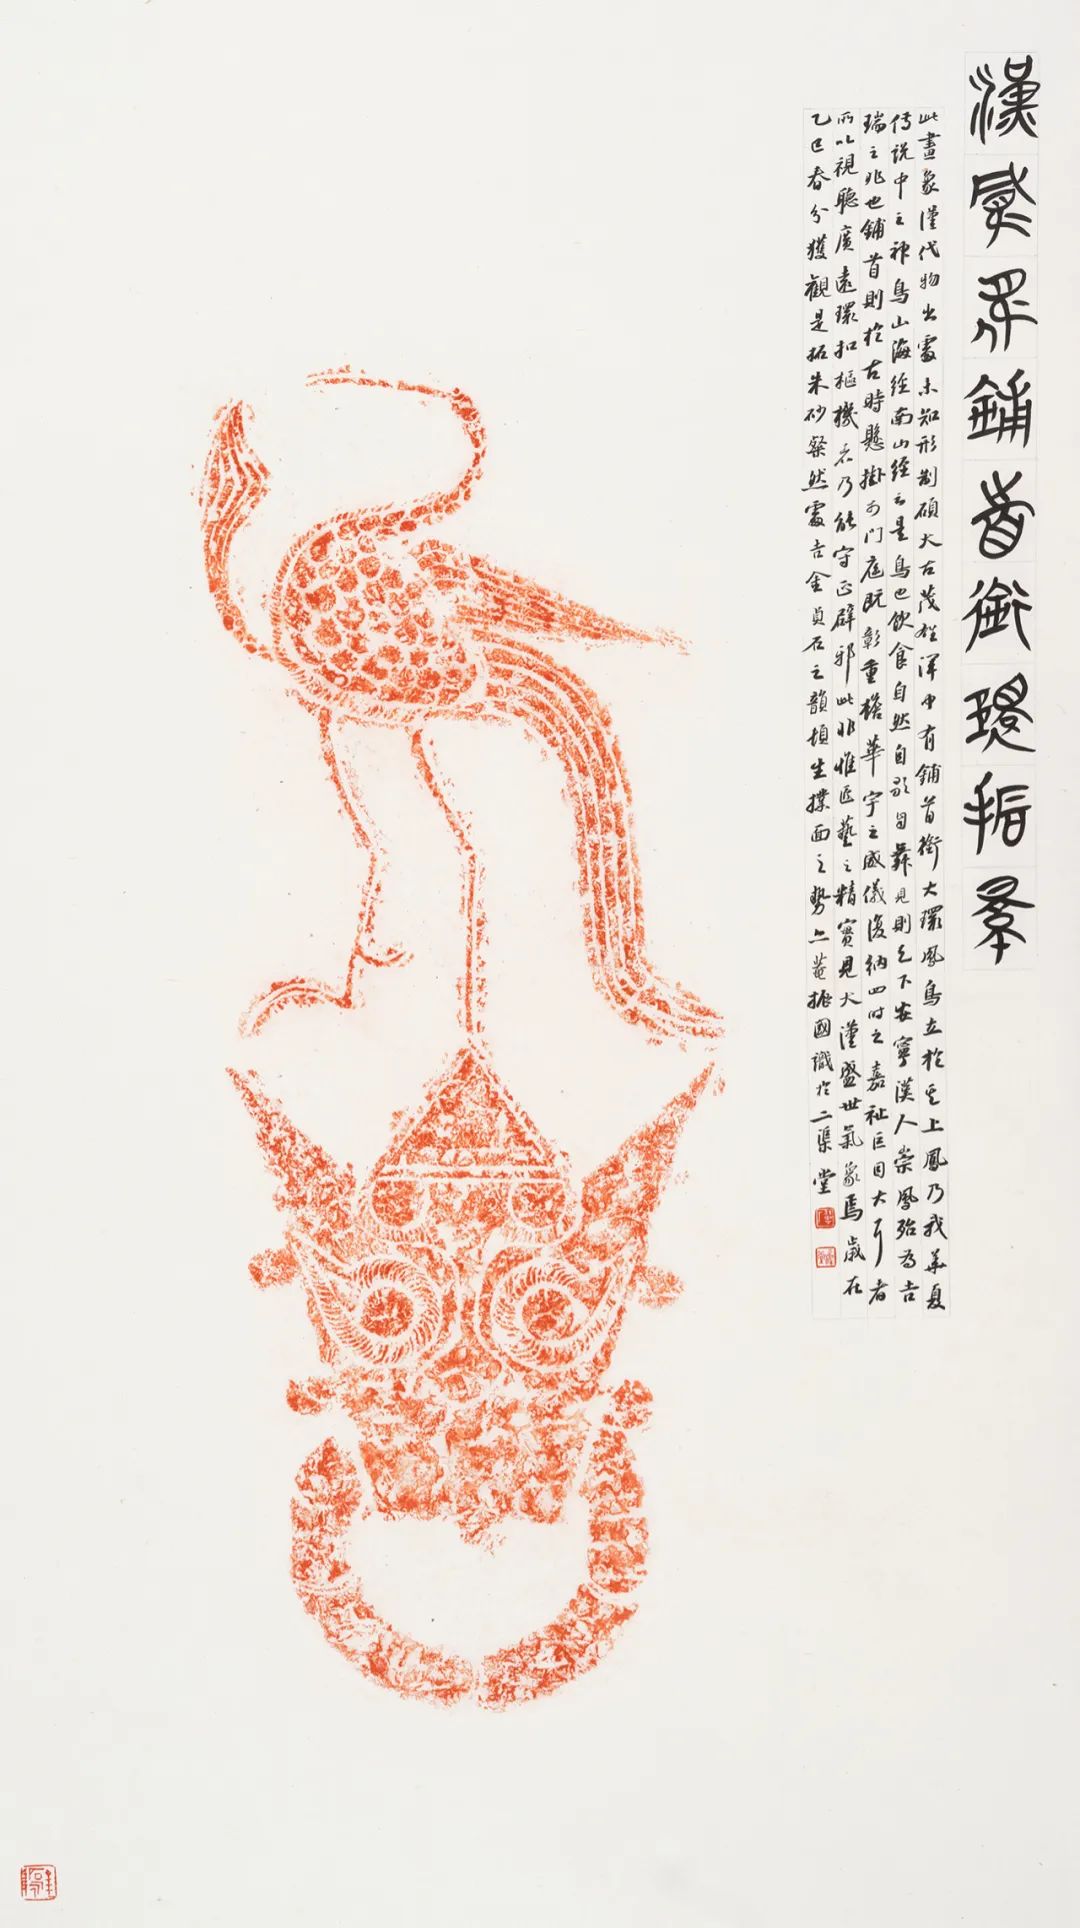 漢鋪首銜環
此畫象漢代物出處未知形制碩大古茂雄渾中有鋪首銜大環鳳鳥立於其上鳳乃我華夏
傳說中之神鳥山海經南山經云是鳥也飲食自然自歌自舞見則天下安寧漢人崇鳳殆為吉
瑞之兆也鋪首則於古時懸掛於門庭既彰重檐華宇之威儀復納四時之嘉祉巨目大耳者
所以視聽廣遠環扣樞機者乃能守正辟邪此非惟匠藝之精實見大漢盛世氣象焉歲在
乙巳春分獲觀是拓朱砂粲然處吉金貞石之韻頓生撲面之勢菴振國識於二渠堂